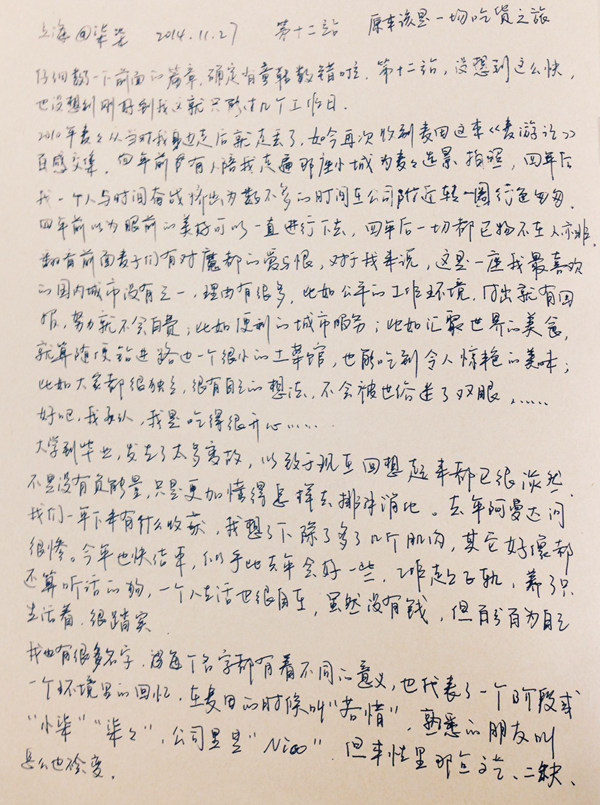 上海@柒柒 2014.11.27 第十二站 原来该是一场吃货之旅
仔细数一下前面的篇章,确定有童鞋数错啦。第十二站,没想到这么快,
也没想到刚好到我这就只隔十几个工作日。
2010年麦麦从当时我身边走后就走丢了,如今再次收到麦田这本《麦游记》
百感交集。四年前有人陪我走遍那座小城为麦麦造景、拍照,四年后
我一个人与时间奋战挤出为数不多的时间在公司附近转一圈行色匆匆。
四年前以为眼前的美好可以一直进行下去,四年后一切都已物不在人亦非。
翻看前面麦子们有对魔都的爱与恨,对于我来说,这是一座我最喜欢
的国内城市没有之一,理由有很多,比如公平的工作环境,付出就有回
报,努力就不会白费;比如便利的城市服务;比如汇聚世界的美食,
就算随便钻进路边一个很小的土菜馆,也能吃到令人惊艳的美味;
比如大家都很独立,很有自己的想法,不会被世俗迷了双眼,……
好吧,我承认,我是吃得很开心……
大学到毕业,发生了太多变故,以致于现在回想起来都已很淡然,
不是没有负能量,只是更加懂得怎样去排解消化。去年阿曼达问
我们一年下来有什么收获,我想了下除了多了几个肌肉,其它好像都
很惨。今年也快结束,似乎比去年会好一些,工作走上正轨,养了只
还算听话的狗,一个人生活也很自在,虽然没有钱,但百分百为自己
生活着,很踏实
我也有很多名字,每个名字都有着不同的意义,也代表了一个阶段或
一个环境里的回忆,在麦田的时候叫"若情",熟悉的朋友叫
"小柒""柒柒",公司里是"Nico",但本性里那点文艺、二缺、
怎么也不会变。